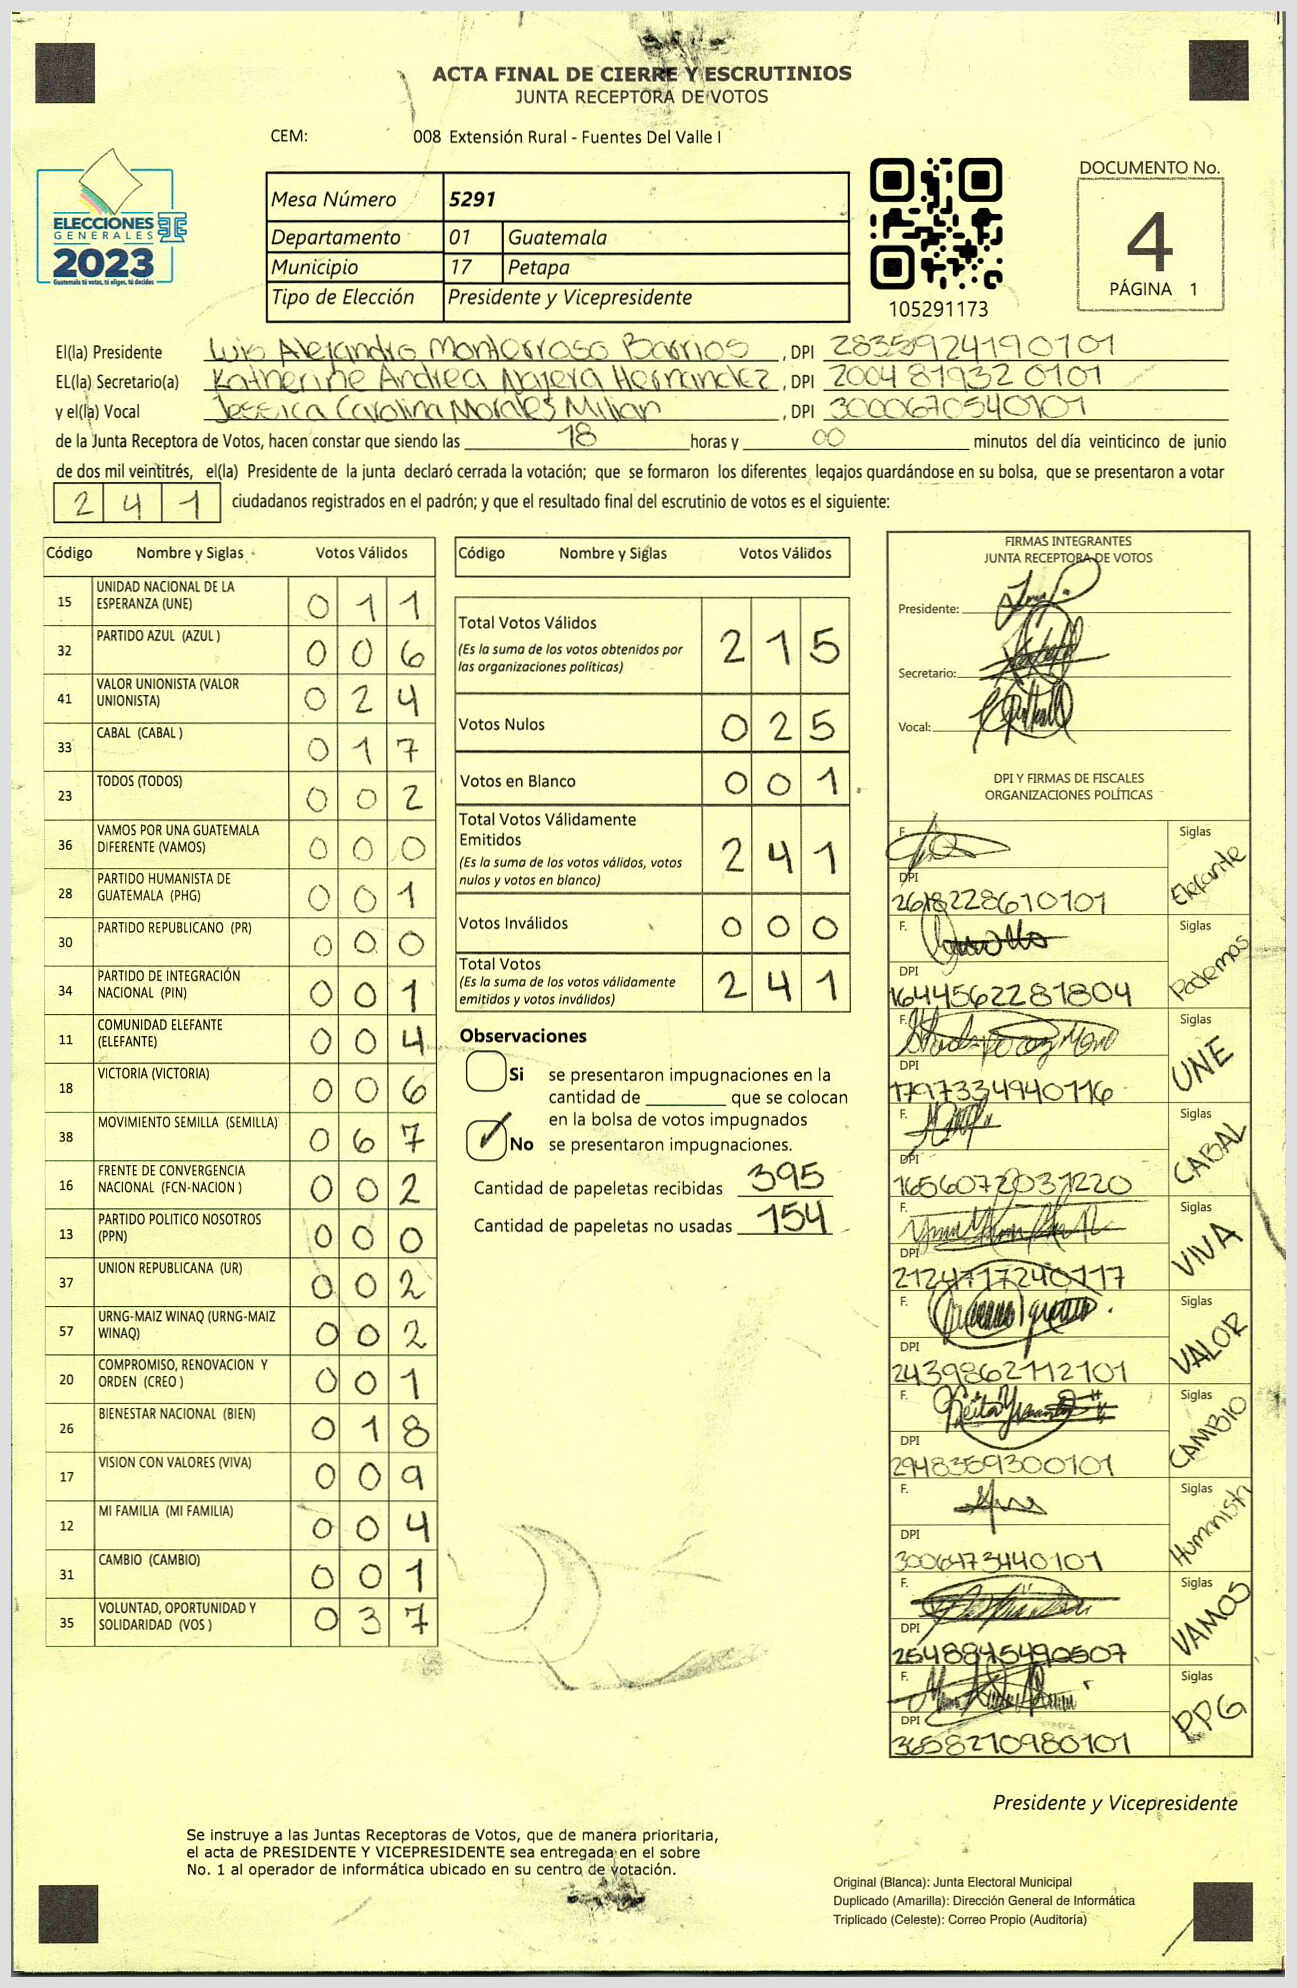 ACTA FINAL DE CIERRE Y ESCRUTINIOS
JUNTA RECEPTORA DE VOTOS
CEM: 008 Extensión Rural - Fuentes Del Valle I
ELECCIONES
GENERALES
2023
Guatemala tú votas, tú eliges, tú decides
Mesa Número 5291
Departamento 01 Guatemala
Municipio 17 Petapa
Tipo de Elección Presidente y Vicepresidente
105291173
DOCUMENTO No.
4
PÁGINA 1
El(la) Presidente Luis Alejandro Monterroso Barrios, DPI 2835924190101
EL(la) Secretario(a) Katherine Andrea Najera Hernandez, DPI 2004819320101
y el(la) Vocal Jessica Carolina Morales Milian, DPI 3000670540101
de la Junta Receptora de Votos, hacen constar que siendo las 18 horas y 00 minutos del día veinticinco de junio
de dos mil veintitrés, el(la) Presidente de la junta declaró cerrada la votación; que se formaron los diferentes legajos guardándose en su bolsa, que se presentaron a votar
241 ciudadanos registrados en el padrón; y que el resultado final del escrutinio de votos es el siguiente:
Código Nombre y Siglas Votos Válidos
15 UNIDAD NACIONAL DE LA ESPERANZA (UNE) 011
32 PARTIDO AZUL (AZUL ) 006
41 VALOR UNIONISTA (VALOR UNIONISTA) 024
33 CABAL (CABAL ) 017
23 TODOS (TODOS) 002
36 VAMOS POR UNA GUATEMALA DIFERENTE (VAMOS) 000
28 PARTIDO HUMANISTA DE GUATEMALA (PHG) 001
30 PARTIDO REPUBLICANO (PR) 000
34 PARTIDO DE INTEGRACIÓN NACIONAL (PIN) 001
11 COMUNIDAD ELEFANTE (ELEFANTE) 004
18 VICTORIA (VICTORIA) 006
38 MOVIMIENTO SEMILLA (SEMILLA) 067
16 FRENTE DE CONVERGENCIA NACIONAL (FCN-NACION ) 002
13 PARTIDO POLITICO NOSOTROS (PPN) 000
37 UNION REPUBLICANA (UR) 002
57 URNG-MAIZ WINAQ (URNG-MAIZ WINAQ) 002
20 COMPROMISO, RENOVACION Y ORDEN (CREO ) 001
26 BIENESTAR NACIONAL (BIEN) 018
17 VISION CON VALORES (VIVA) 009
12 MI FAMILIA (MI FAMILIA) 004
31 CAMBIO (CAMBIO) 001
35 VOLUNTAD, OPORTUNIDAD Y SOLIDARIDAD (VOS ) 037
Código Nombre y Siglas Votos Válidos
Total Votos Válidos 215
(Es la suma de los votos obtenidos por
las organizaciones políticas)
Votos Nulos 025
Votos en Blanco 001
Total Votos Válidamente
Emitidos 241
(Es la suma de los votos válidos, votos
nulos y votos en blanco)
Votos Inválidos 000
Total Votos 241
(Es la suma de los votos válidamente
emitidos y votos inválidos)
Observaciones
Si se presentaron impugnaciones en la
cantidad de que se colocan
en la bolsa de votos impugnados
No se presentaron impugnaciones.
Cantidad de papeletas recibidas 395
Cantidad de papeletas no usadas 154
FIRMAS INTEGRANTES
JUNTA RECEPTORA DE VOTOS
Presidente:
Secretario:
Vocal:
DPI Y FIRMAS DE FISCALES
ORGANIZACIONES POLÍTICAS
F. Siglas Elefante
DPI 2618228610101
F. Siglas Podemos
DPI 1644562281804
F. Siglas UNE
DPI 1797334940116
F. Siglas CABAL
DPI 1656072031220
F. Siglas VIVA
DPI 2124717240117
F. Siglas VALOR
DPI 2439862112101
F. Siglas CAMBIO
DPI 2948359300101
F. Siglas Humanista
DPI 3006473440101
F. Siglas VAMOS
DPI 2548845490507
F. Siglas PPG
DPI 3658210980101
Presidente y Vicepresidente
Se instruye a las Juntas Receptoras de Votos, que de manera prioritaria,
el acta de PRESIDENTE Y VICEPRESIDENTE sea entregada en el sobre
No. 1 al operador de informática ubicado en su centro de votación.
Original (Blanca): Junta Electoral Municipal
Duplicado (Amarilla): Dirección General de Informática
Triplicado (Celeste): Correo Propio (Auditoría)